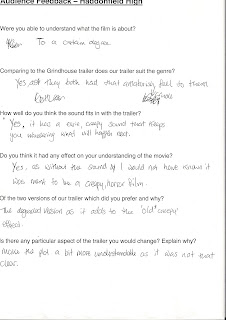 Audience Feedback – Haddonfield High
Were you able to understand what the film is about?
To a certain degree.
Comparing to the Grindhouse trailer does our trailer suit the genre?
Yes, as they both had that amateurish feel to them
How well do you think the sound fits in with the trailer?
Yes, it has a eerie, creepy sound that keeps
you wondering what will happen next.
Do you think it had any effect on your understanding of the movie?
Yes, as without the sound I would not have known it
was meant to be a creepy, horror film.
Of the two versions of our trailer which did you prefer and why?
The degraded version as it adds to the 'old' creepy
effect.
Is there any particular aspect of the trailer you would change? Explain why?
make the plot a bit more understandable as it was not that
clear.